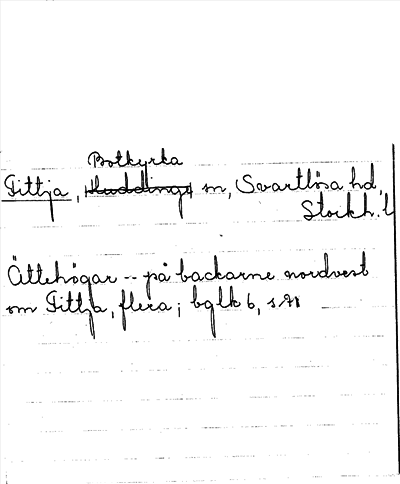 Botkyrka
Fittja, Huddinge sn, Svartlösa hd,
Stockh. l
Ättehögar -- på backarne nordvest
om Fittja, flera; bglk 6, s.